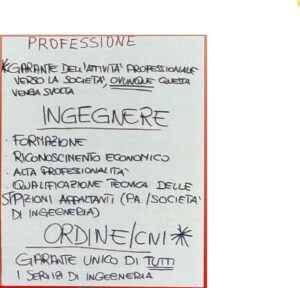 PROFESSIONE
*GARANTE DELL'ATTIVITÀ PROFESSIONALE
VERSO LA SOCIETÀ, OVUNQUE QUESTA
VENGA SVOLTA
INGEGNERE
· FORMAZIONE
· RICONOSCIMENTO ECONOMICO
· ALTA PROFESSIONALITÀ
· QUALIFICAZIONE TECNICA DELLE
STAZIONI APPALTANTI (P.A./SOCIETÀ
DI INGEGNERIA)
ORDINE/CNI *
GARANTE UNICO DI TUTTI
I SERVIZI DI INGEGNERIA